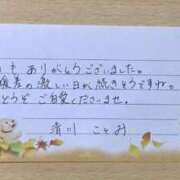 も ありがとうございました。
暖差の激しい日が続きそうですね。
どうぞ ご自愛くださいませ。
清川 ことみ